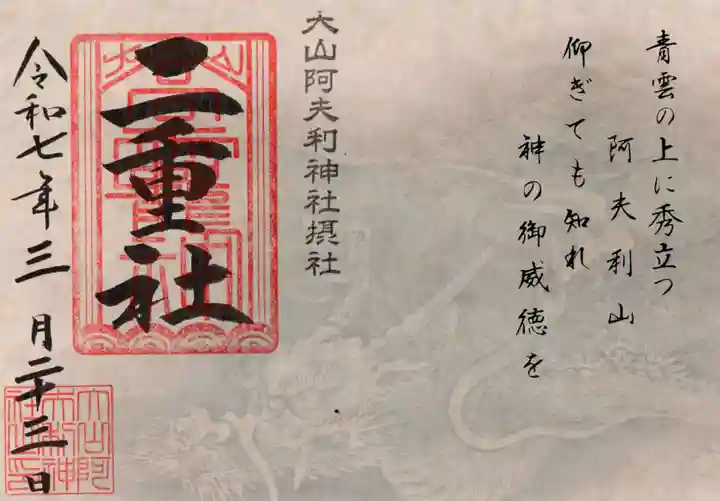 青雲の上に秀立つ
阿夫利山
仰ぎても知れ
神の御威徳を
大山阿夫利神社摂社
二重社
令和七年三月二十三日